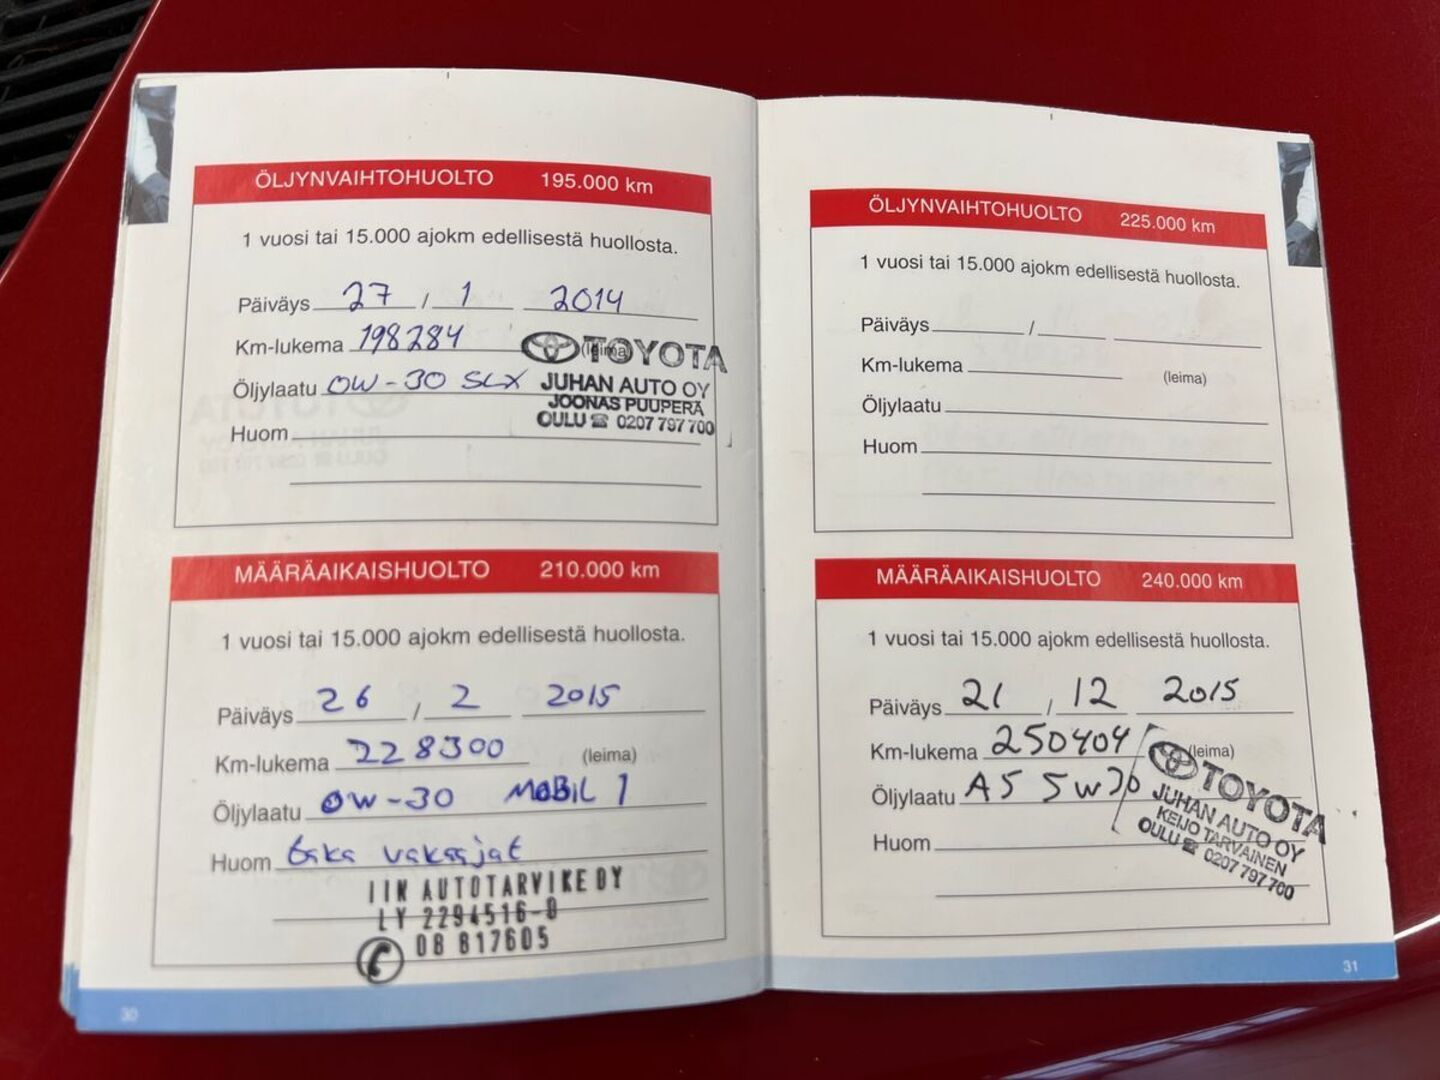 ÖLJYNVAIHTOHUOLTO 195.000 km
1 vuosi tai 15.000 ajokm edellisestä huollosta.
Päiväys 27 / 1 2014
Km-lukema 198284 (leima)
Öljylaatu 0W-30 SLX
Huom
TOYOTA
JUHAN AUTO OY
JOONAS PUUPERÄ
OULU ☎ 0207 797 700
MÄÄRÄAIKAISHUOLTO 210.000 km
1 vuosi tai 15.000 ajokm edellisestä huollosta.
Päiväys 26 / 2 2015
Km-lukema 228300 (leima)
Öljylaatu 0W-30 MOBIL 1
Huom taka vakaajat
IIN AUTOTARVIKE OY
LY 2294516-8
08 817605
30
ÖLJYNVAIHTOHUOLTO 225.000 km
1 vuosi tai 15.000 ajokm edellisestä huollosta.
Päiväys /
Km-lukema (leima)
Öljylaatu
Huom
MÄÄRÄAIKAISHUOLTO 240.000 km
1 vuosi tai 15.000 ajokm edellisestä huollosta.
Päiväys 21 / 12 2015
Km-lukema 250404 (leima)
Öljylaatu A5 5W30
Huom
TOYOTA
JUHAN AUTO OY
KEIJO TARVAINEN
OULU ☎ 0207 797 700
31